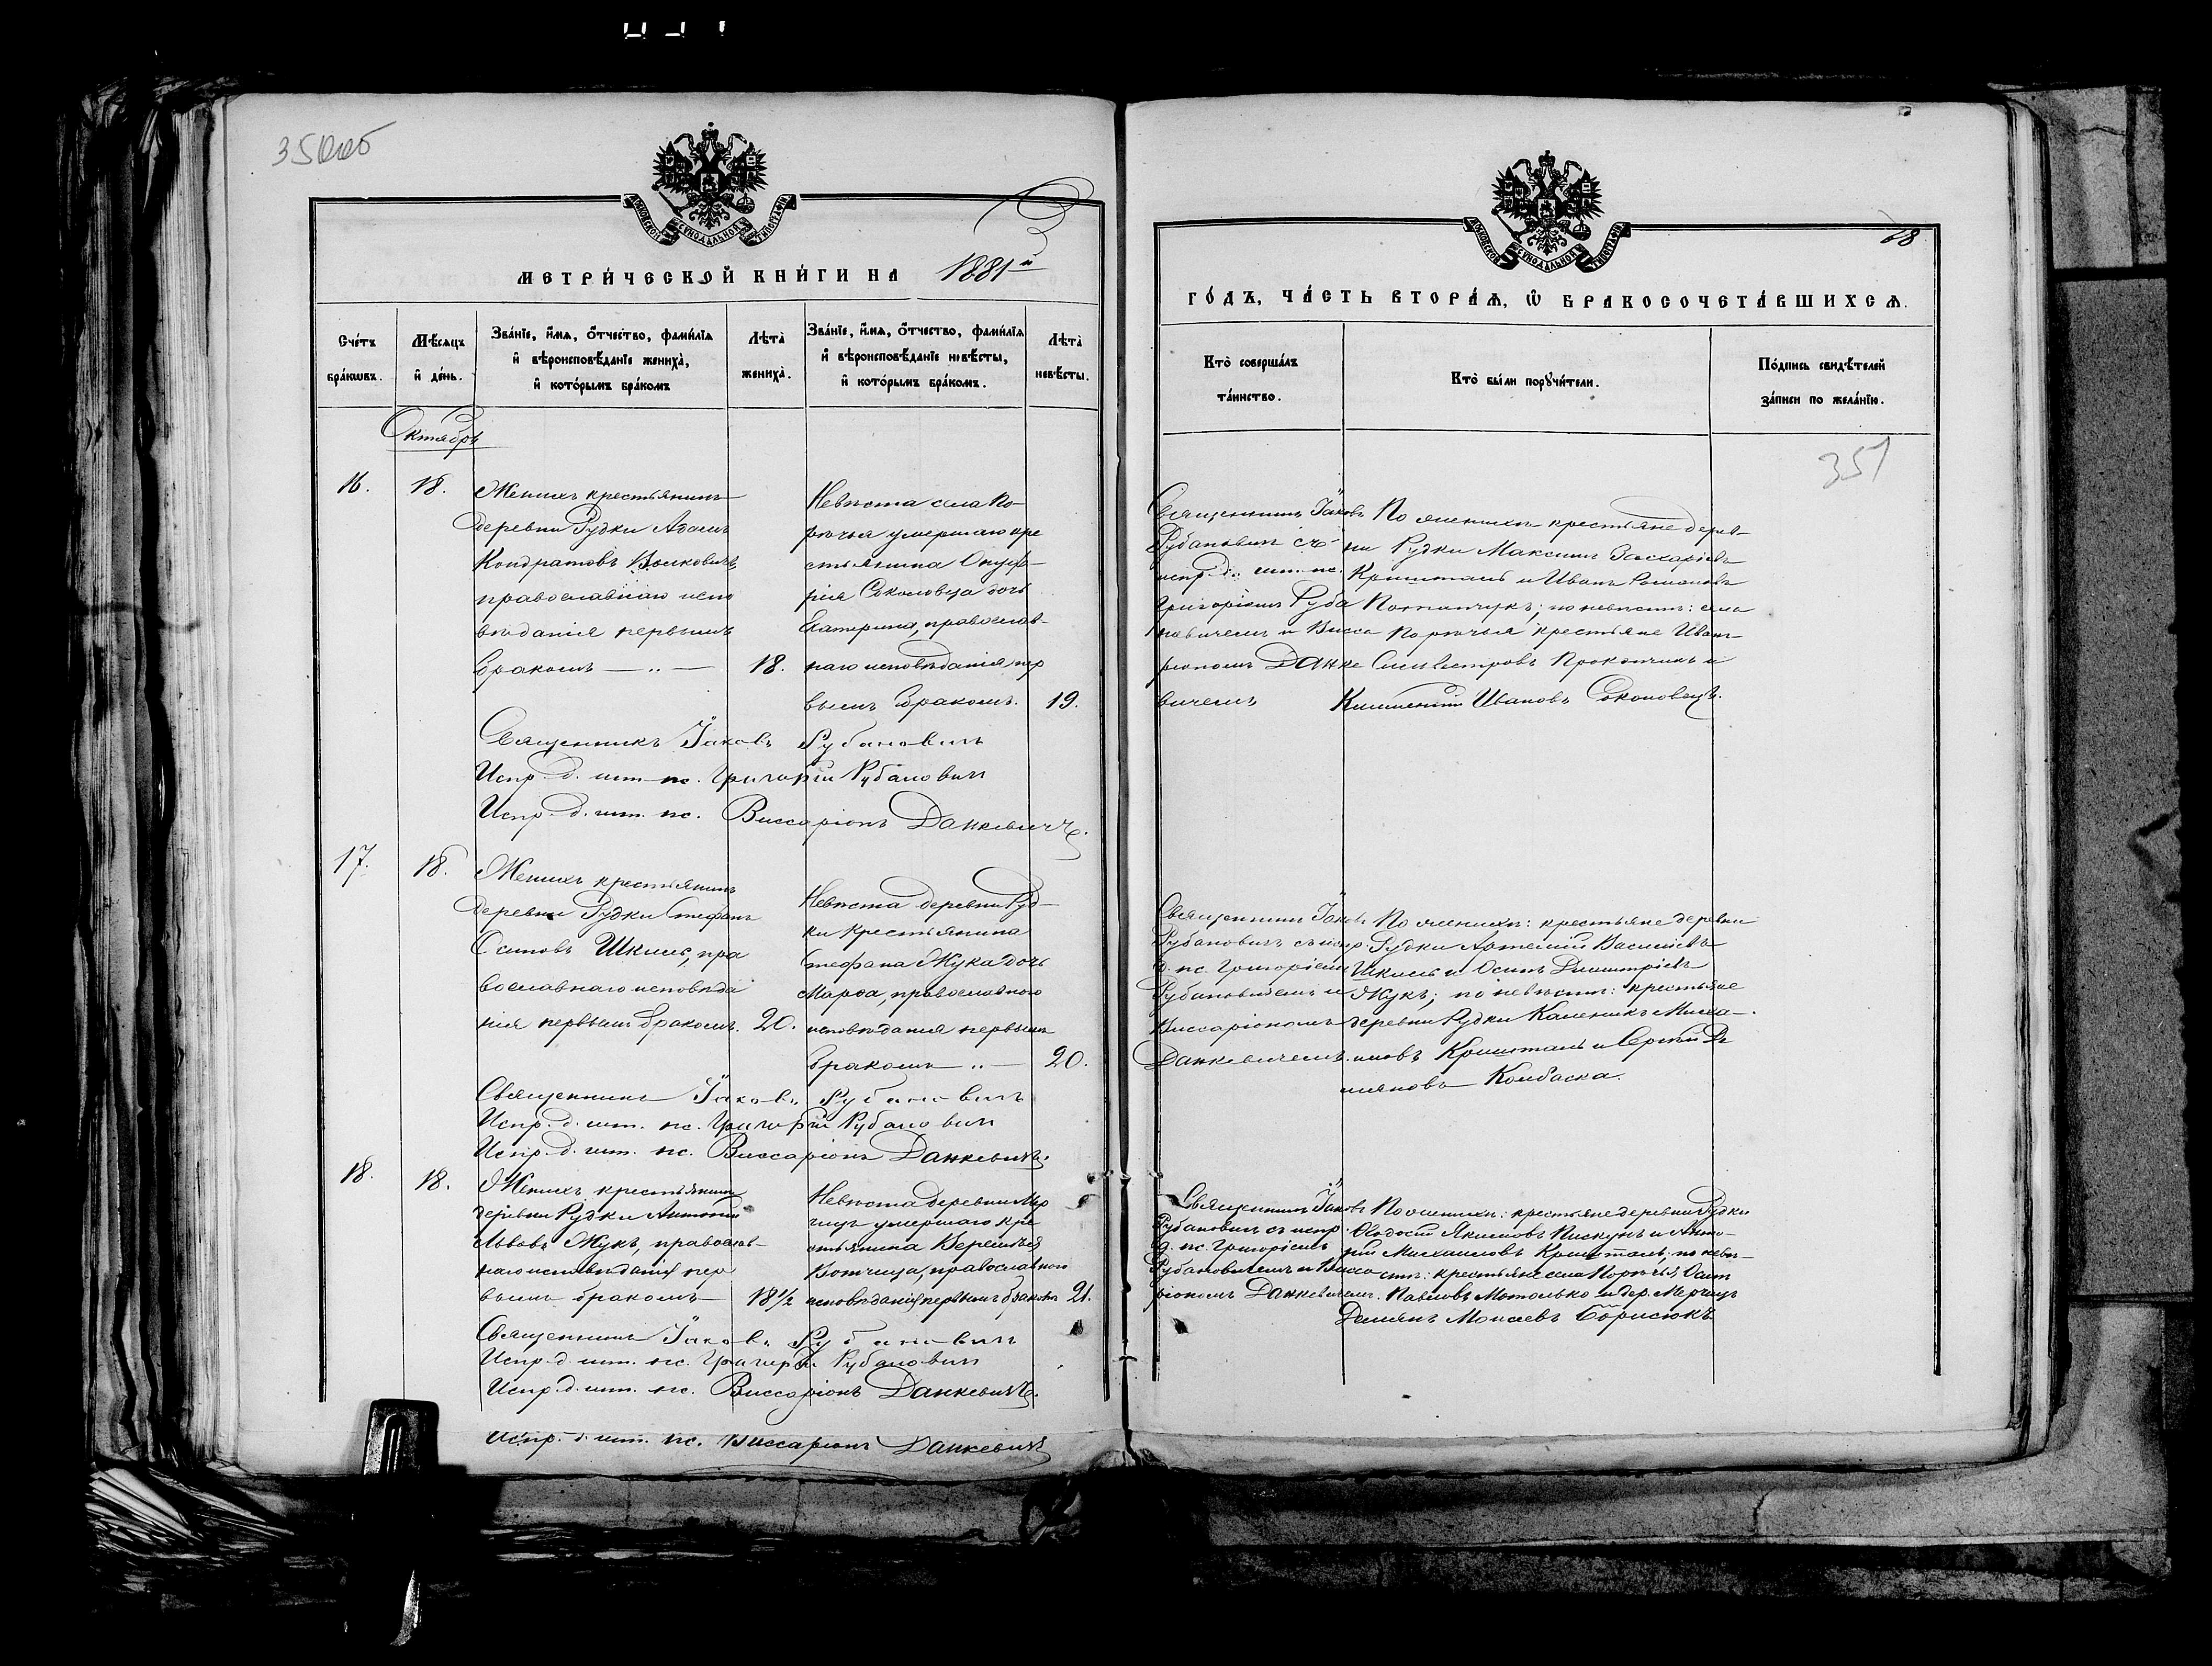 350об
МОСКОВСКОЙ СУНОДАЛЬНОЙ ТИПОГРАФІИ
МЕТРИ́ЧЕСКОЙ КНИ́ГИ НА 1881й
Сче́тъ бра́кѡвъ.
Мѣ́сяцъ и҆ де́нь.
Зва́нїе, и҆́мѧ, ѻ҆́тчество, фами́лїѧ и҆ вѣроисповѣ́данїе жениха̀, и҆ кото́рымъ бра́комъ
Лѣта̀ жениха̀.
Зва́нїе, и҆́мѧ, ѻ҆́тчество, фами́лїѧ и҆ вѣроисповѣ́данїе невѣ́сты, и҆ кото́рымъ бра́комъ.
Лѣта̀ невѣ́сты.
Октябрь
16.
18.
Женихъ крестьянинъ
деревни Рудки Адамъ
Кондратовъ
православнаго испо
вѣданія первымъ
бракомъ — „ —
18.
Невѣста села По-
рѣчья умершаго кре
стьянина Онуф-
рія Соколовца дочь
Екатерина, православ-
наго исповѣданія пер
вымъ бракомъ.
19.
Священникъ Іаковъ Рубановичъ
Испр. д. шт. пс. Григорій Рубановичъ
Испр. д. шт. пс. Виссаріонъ Данкевичъ.
17.
18.
Женихъ крестьянинъ
деревни Рудки Стефанъ
Осиповъ Шкиль, пра
вославнаго исповѣда
нія первымъ бракомъ.
20.
Невѣста деревни Руд-
ки крестьянина
Стефана Жука дочь
Марѳа, православнаго
исповѣданія первымъ
бракомъ „ —
20.
Священникъ Іаковъ Рубановичъ
Испр. д. шт. пс. Григорій Рубановичъ
Испр. д. шт. пс. Виссаріонъ Данкевичъ.
18.
18.
Женихъ крестьянинъ
деревни Рудки Антоній
Львовъ Жукъ, православ-
наго исповѣданія пер
вымъ бракомъ
18 1/2
Невѣста деревни Мер
чицъ умершаго кре
стьянина
православнаго
исповѣданія первымъ бракомъ
21.
Священникъ Іаковъ Рубановичъ
Испр. д. шт. пс. Григорій Рубановичъ
Испр. д. шт. пс. Виссаріонъ Данкевичъ.
Испр. д. шт. пс. Виссаріонъ Данкевичъ
МОСКОВСКОЙ СУНОДАЛЬНОЙ ТИПОГРАФІИ
68
ГО́ДЪ, ЧА́СТЬ ВТОРА́Ѧ, Ѽ БРАКОСОЧЕТА́ВШИХСѦ.
Кто̀ соверша́лъ та́инство.
Кто̀ бы́ли порꙋчи́тели.
По́дпись свидѣ́телей за́писи по жела́нїю.
351
Священникъ Іаковъ
Рубановичъ съ
испр. д. шт. пс.
Григоріемъ Руба
новичемъ и Висса
ріономъ Данке
вичемъ
По женихѣ крестьяне дерев-
ни Рудки Максимъ Захаріевъ
Кришталь и Иванъ Романовъ
Потапчукъ; по невѣстѣ: села
Порѣчья крестьяне Иванъ
Сильвестровъ Прокопчикъ и
Климентій Ивановъ Соколовецъ.
Священникъ Іаковъ
Рубановичъ съ испр.
д. пс. Григоріемъ
Рубановичемъ и
Виссаріономъ
Данкевичемъ.
По женихѣ: крестьяне деревни
Рудки Артемій Василіевъ
Шкиль и Осипъ Димитріевъ
Жукъ; по невѣстѣ: крестьяне
деревни Рудки Каленикъ Миха-
иловъ Кришталь и Сергѣй Де
мяновъ Колбаска.
Священникъ Іаковъ
Рубановичъ съ испр.
д. пс. Григоріемъ
Рубановичемъ и Висса
ріономъ Данкевичемъ.
По женихѣ: крестьяне деревни Рудки
Ѳеодосій Якимовъ Пискунъ и Анто-
ній Михаиловъ Кришталь; по невѣ-
стѣ: крестьяне села Порѣчья Осипъ
Павловъ Мотолько и дер. Мерчицъ
Демянъ Моисеевъ Борисюкъ